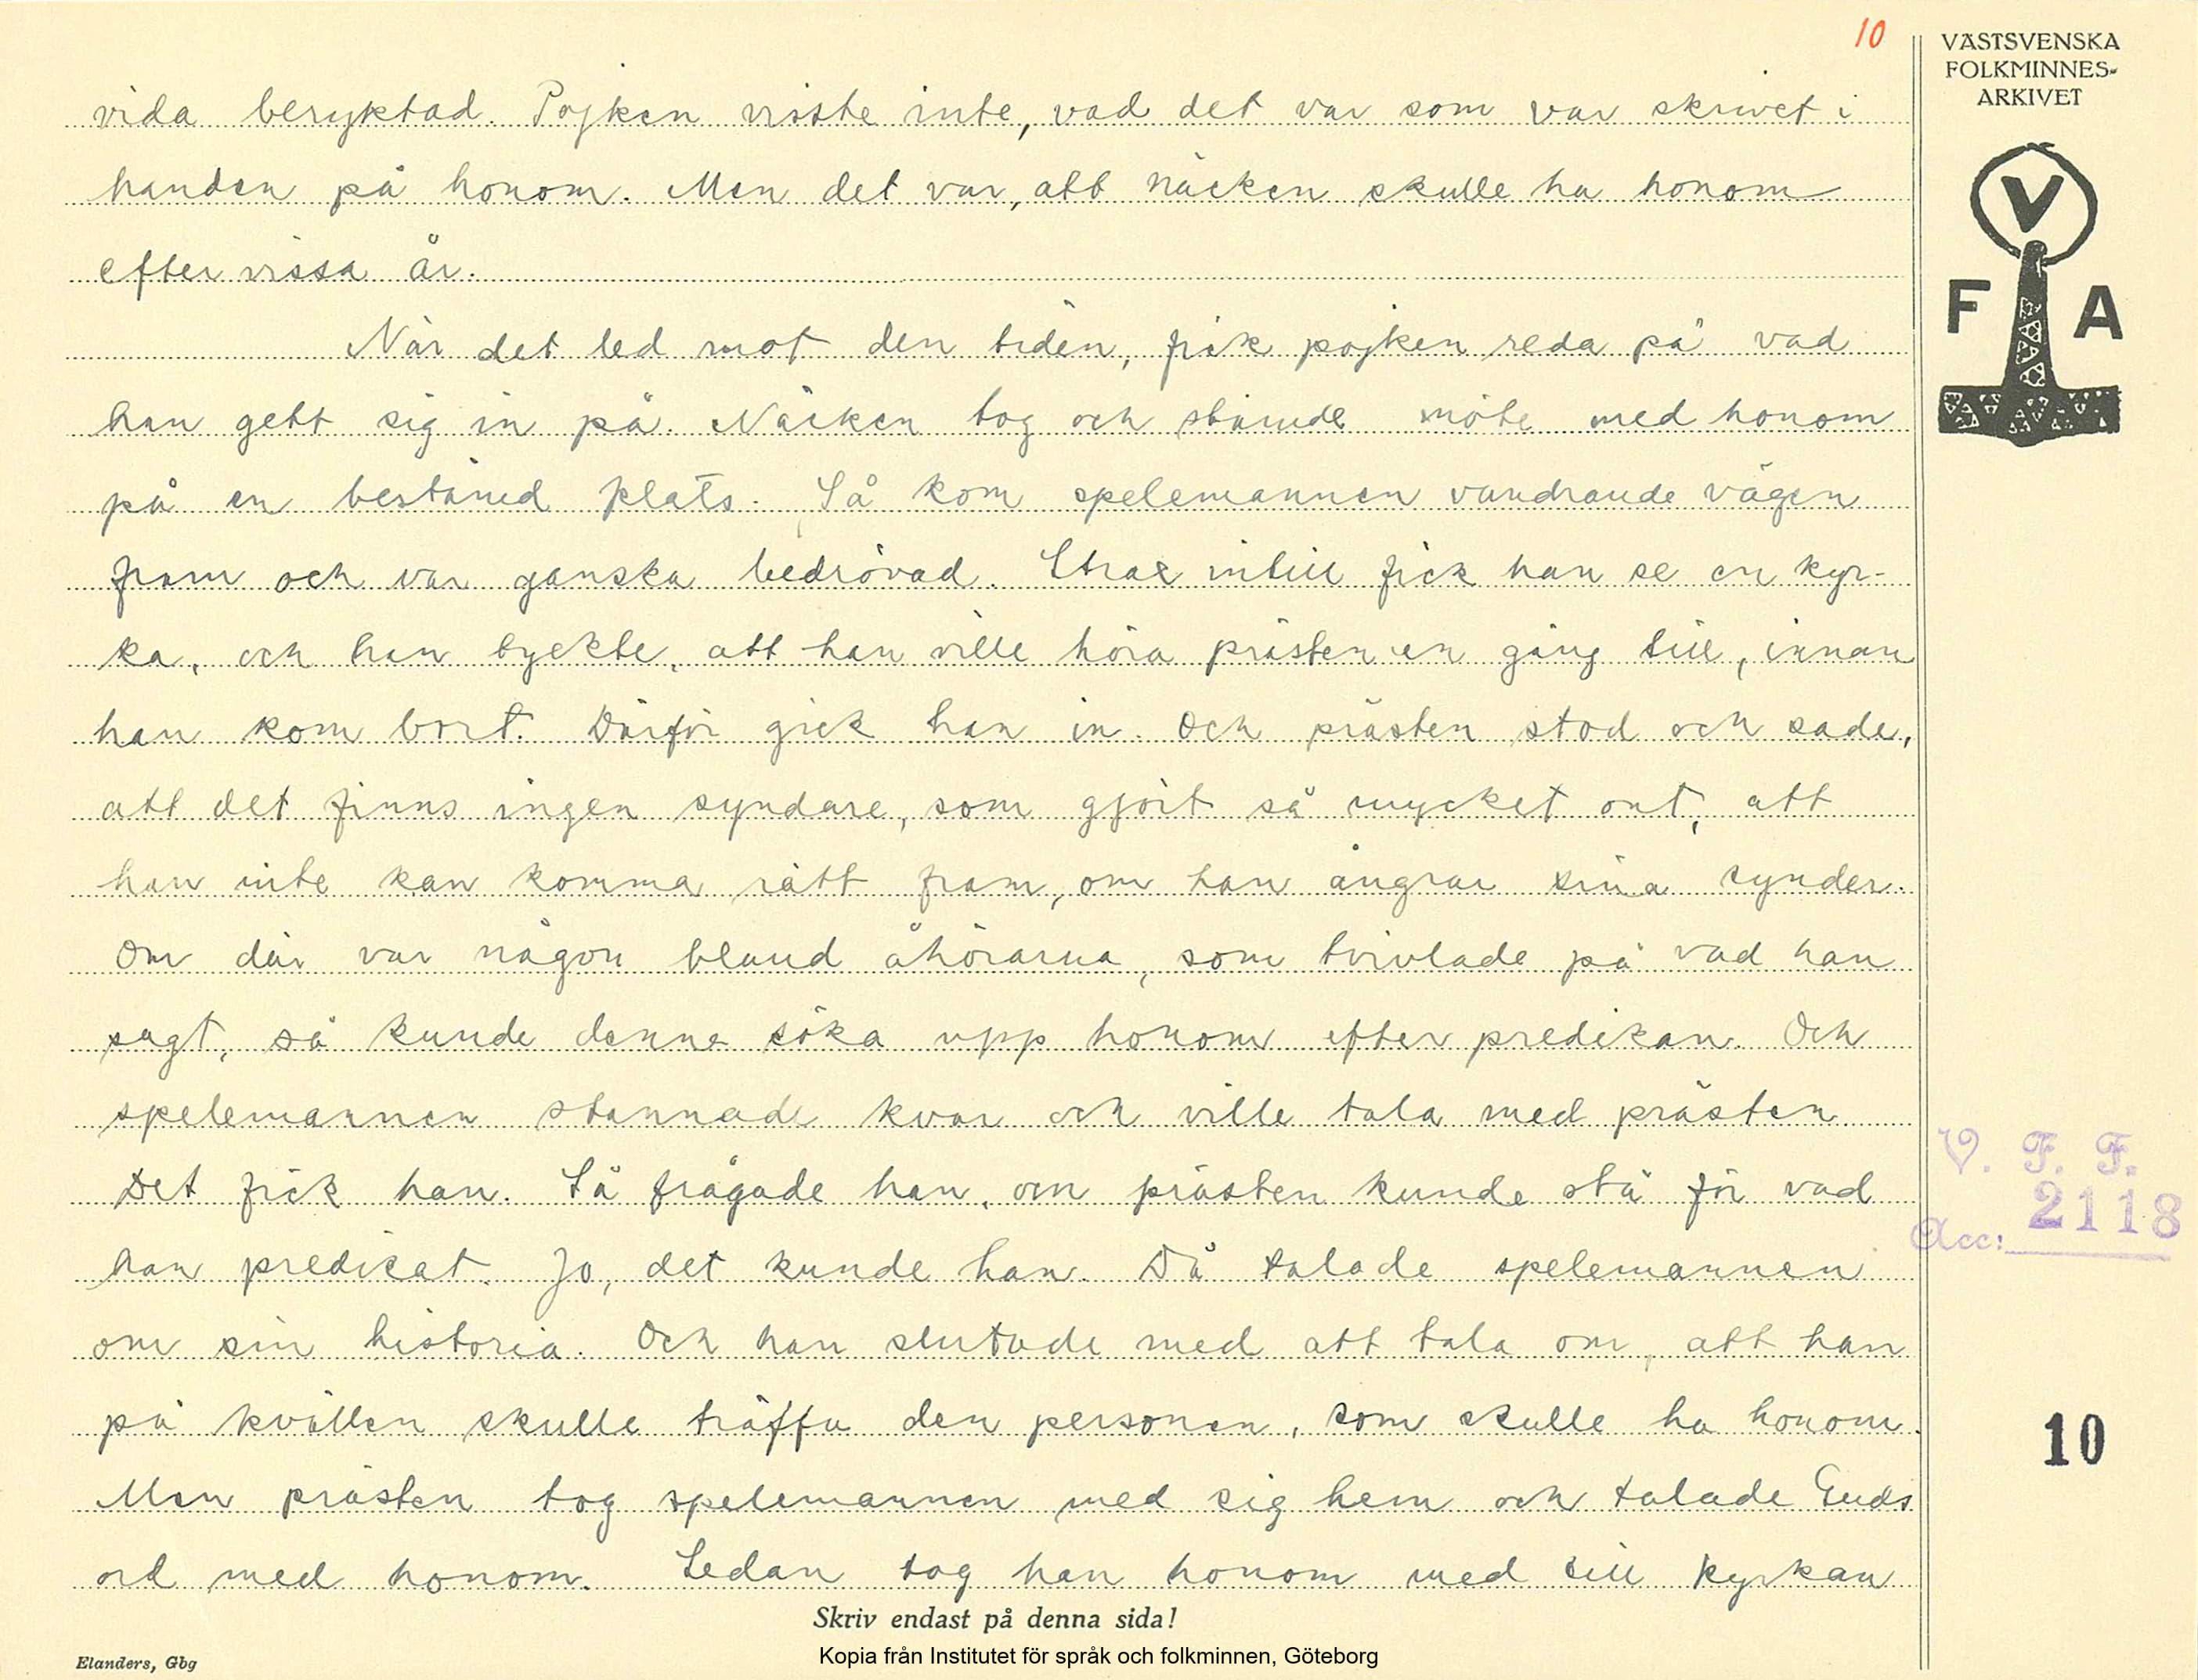 10
VÄSTSVENSKA
FOLKMINNES-
ARKIVET
V
F A
vida beryktad. Pojken visste inte, vad det var som var skrivet i
handen på honom. Men det var, att näcken skulle ha honom
efter vissa år.
När det led mot den tiden, fick pojken reda på vad
han gett sig in på. Näcken tog och stämde möte med honom
på en bestämd plats. Så kom spelemannen vandrande vägen
fram och var ganska bedrövad. Strax intill fick han se en kyr-
ka, och han tyckte, att han ville höra prästen en gång till, innan
han kom bort. Därför gick han in. Och prästen stod och sade,
att det finns ingen syndare, som gjort så mycket ont, att
han inte kan komma rätt fram, om han ångrar sina synder.
Om där var någon bland åhörarna, som tvivlade på vad han
sagt, så kunde denne söka upp honom efter predikan. Och
spelemannen stannade kvar och ville tala med prästen
Det fick han. Så frågade han, om prästen kunde stå för vad
han predikat. Jo, det kunde han. Då talade spelemannen
om sin historia. Och han slutade med att tala om, att han
på kvällen skulle träffa den personen, som skulle ha honom.
Men prästen tog spelemannen med sig hem och talade Guds
ord med honom. Sedan tog han honom med till kyrkan
V. F. F.
Acc: 2118
10
Skriv endast på denna sida!
Kopia från Institutet för språk och folkminnen, Göteborg
Elanders, Gbg